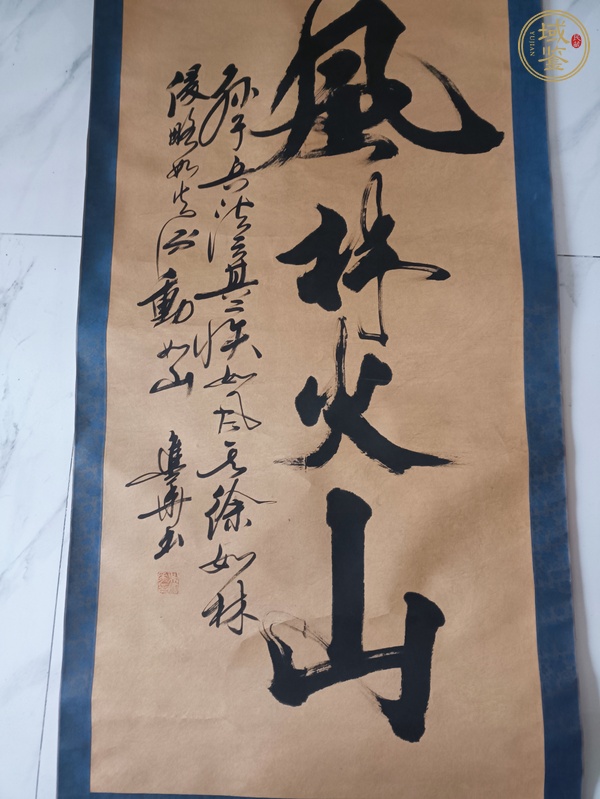 風林火山
孫子兵法云其疾如风其徐如林
侵略如火不動如山
華书
域鉴
YUJIAN